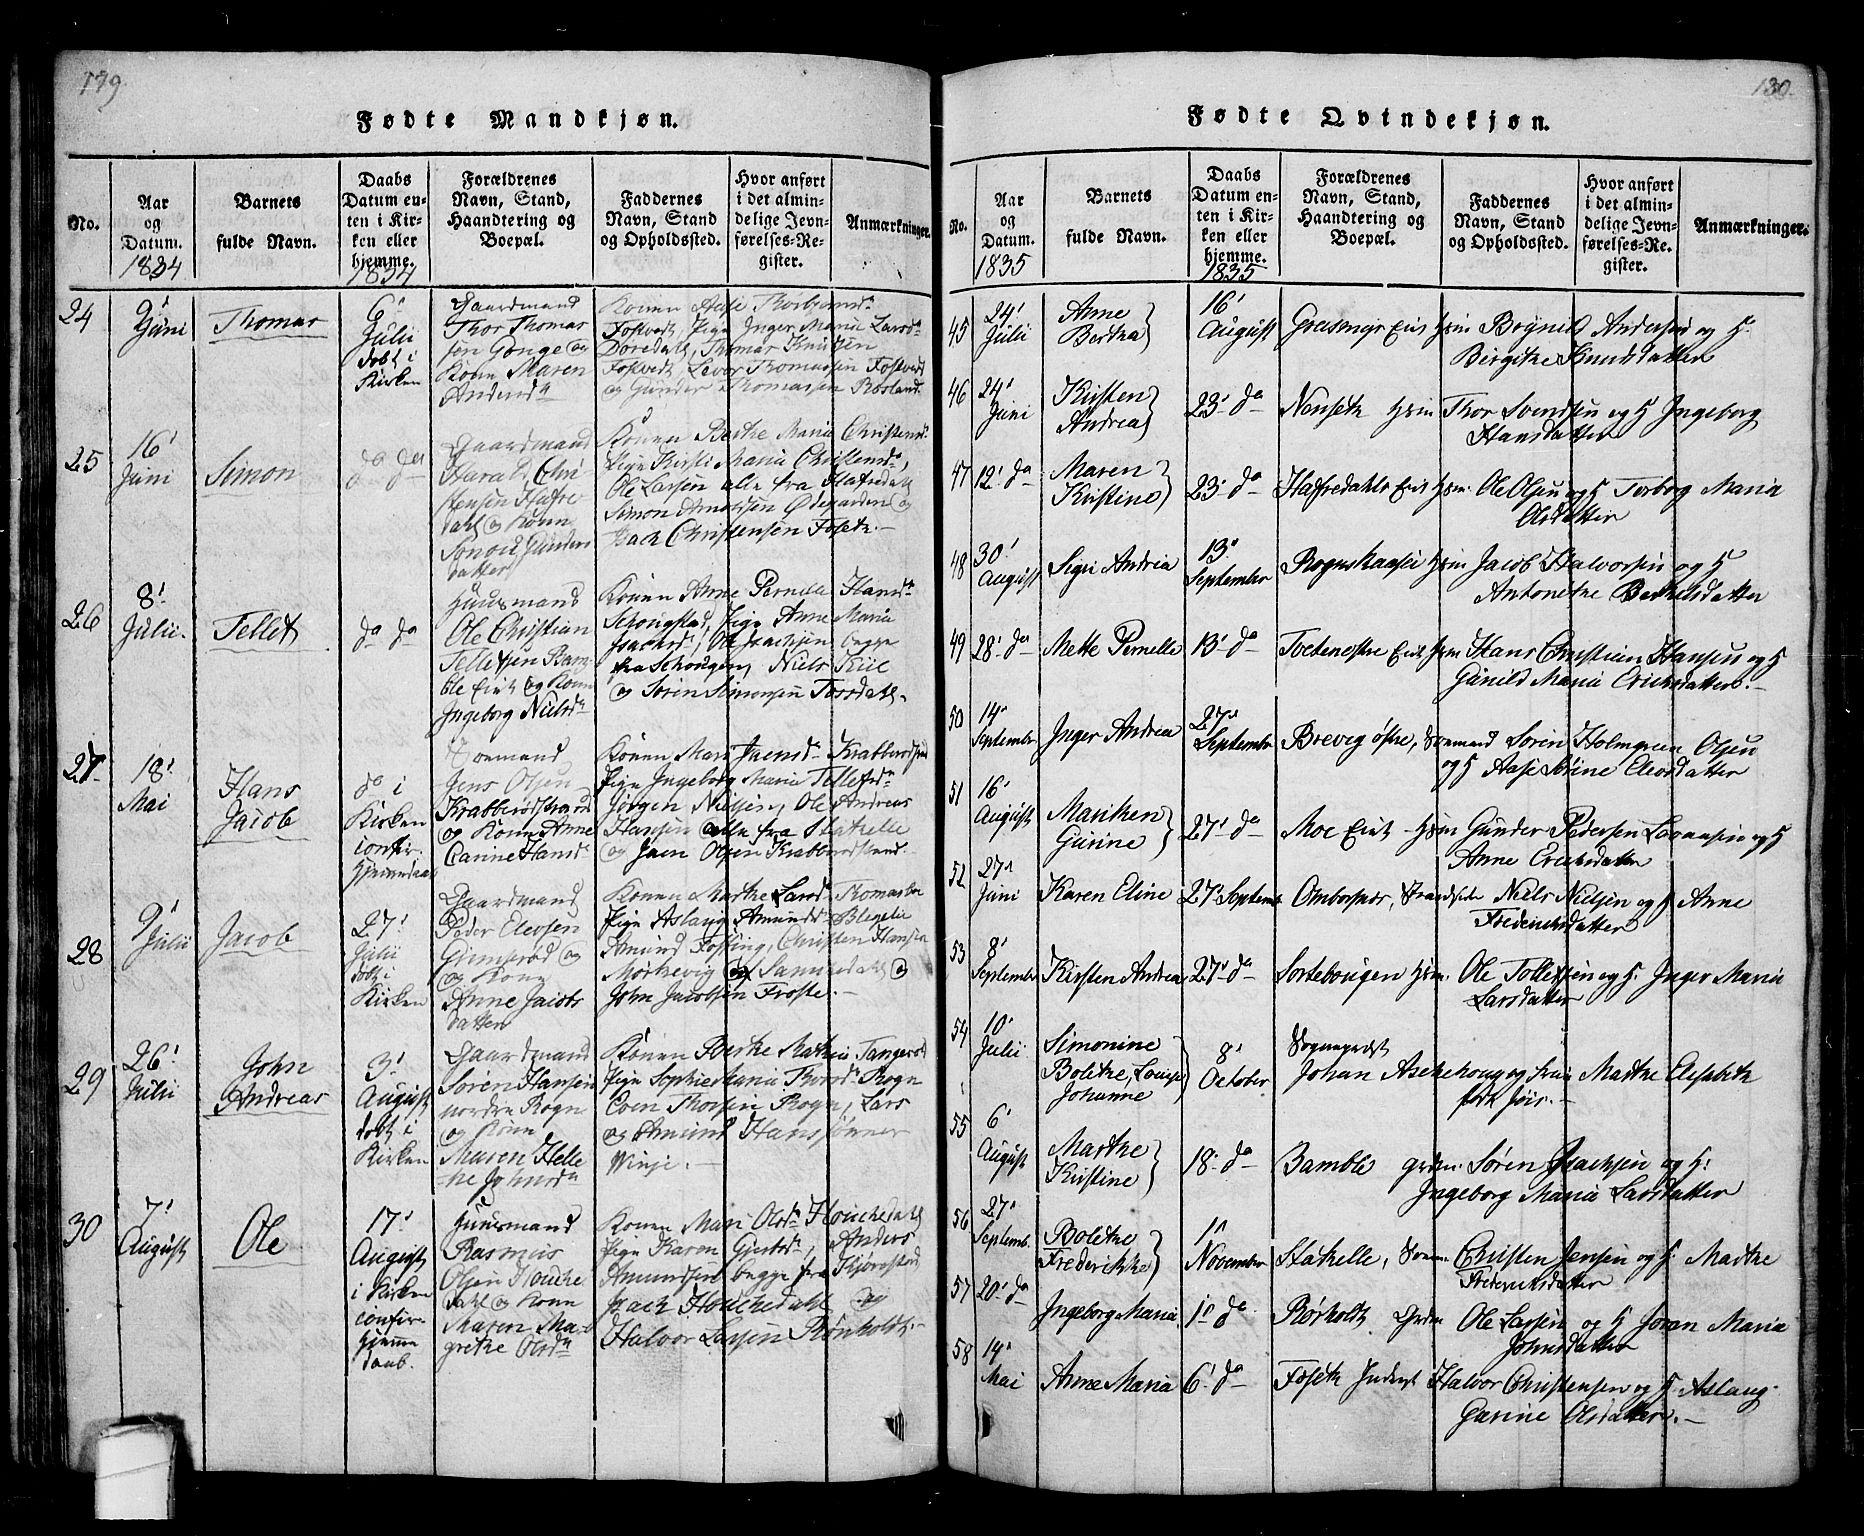 179.
Fødte Mandkjøn.
No.
Aar
og
Datum.
1834
Barnets
fulde Navn.
Daabs
Datum en-
ten i Kir-
ken eller
hjemme.
1834
Forældrenes
Navn, Stand,
Haandtering og
Boepæl.
Faddernes
Navn, Stand
og Opholdssted.
Hvor anført
i det almin-
delige Jevn-
førelses-Re-
gister.
Anmærkninger.
24
9'
Juni
Thomas
6'
Julii
døbt i
Kirken
Gaardmand
Thor Thomas
sen Gonge og
Kone Maren
Andersd
Konen Aase Thorbjørnsd
Fosvedt, Pige Inger Maria Larsd
Doredahl, Thomas Knudsen
Fosvedt, Levor Thomassen Fosvedt
og Gunder Thomassen Røsland
25
16'
Juni
Simon
do do
Gaardmand
Harald Chri
stensen Hafre
dahl og Kone
Gunders
datter
Konen Berthe Maria Christensd
Pige Kirsti Maria Christensd,
Ole Larsen alle fra Hafredahl
Simon Amundsen Ødegaarden og
Isach Christensen Foseth.
26
8'
Julii
Tellef
do do
Huusmand
Ole Christian
Tellefsen Bam
ble Eiet og Kone
Ingeborg Nielsd
Konen Anne Pernelle Hansd
Schougstad, Pige Anne Maria
Isachsd, Ole Isachsen begge
fra Schougen, Niels Kiil
og Søren Simonsen Tørsdahl.
27
18'
Mai
Hans
Jacob
do i
Kirken
confir.
Hjemmedaab
Jens Olsen
Krabberødstrand
og Kone Anne
Carine Hansd
Konen Mari Jensd Krabberødstrand
Pige Ingeborg Maria Tellefsd
Jørgen Nielsen, Ole Andreas
Hansen alle fra Stathelle
og Jaen Olsen Krabberødstrand
28
9'
Julii
Jacob
27'
Julii
døbt i
Kirken
Gaardmand
Peder Elevsen
Grimsrød og
og Kone
Anne Jacobs
datter
Konen Marthe Larsd Thomasbro
Pige Aslaug Amundsd Blegelie
Amund Fossing, Christen Hansen
Mørkevig og Samuedahl og
John Jacobsen Froste.
29
26'
Julii
John
Andreas
3'
August
døbt i
Kirken
Gaardmand
Søren Hansen
nordre Rogn
og Kone
Maren Helle
ne Johnsd
Konen Berthe Mathea Tangerød
Pige Sophie Maria Thorsd Rogn
Even Thorsen Rogn, Lars
og Amund Hanssønner
Vinje.
30
7'
August
Ole
17'
August
i Kirken
confir
hjemme
daab.
Huusmand
Rasmus
Olsen Houche
dahl og Kone
Maren Mar
grethe Olsd
Konen Mari Olsd Houchedahl
Pige Karen Gjertsd, Anders
Amundsen begge fra Kjørstad
Isach Houchedahl og
Halvor Larsen Rønholt.
130.
Fødte Qvindekjøn.
No.
Aar
og
Datum.
1835
Barnets
fulde Navn.
Daabs
Datum en-
ten i Kir-
ken eller
hjemme.
1835
Forældrenes
Navn, Stand,
Haandtering og
Boepæl.
Faddernes
Navn, Stand
og Opholdssted.
Hvor anført
i det almin-
delige Jevn-
førelses-Re-
gister.
Anmærkninger.
45
24'
Julii
Anne
Bertha
16'
August
Grasmyr Eiet Hsm Brynild Andersen og H.
Birgithe Knudsdatter
46
24'
Juni
Kirsten
Andrea
23' do
Nenseth Hsm Thor Svendsen og H Ingeborg
Hansdatter
47
12' do
Maren
Kirstine
23' do
Haffredahls Eiet Hsm. Ole Olsen og H Torborg Maria
Olsdatter
48
30'
August
Sigri Andrea
13'
September
Rognskaasen Hsm Jacob Halvorsen og H
Antonethe Berthelsdatter
49
28' do
Mette Pernelle
13' do
Tvetenestre Eiet Hsm Hans Christian Hansen og H
Gunild Maria Ericksdatter.
50
14'
September
Inger Andrea
27'
September
Brevig østre, Søemand Søren Holmgreen Olsen
og H Aase Sørine Elevsdatter
51
16'
August
Mariken
Gurine
27' do
Moe Eiet Hsm Gunder Pedersen og H
Anne Ericksdatter
52
27'
Juni
Karen Eline
27' Septemb
Ombersnæs, Strandsid. Niels Nielsen og H Anne
Frederiksdatter
53
8'
September
Kirsten Andrea
27' do
Sortebougen Hsm. Ole Tollefsen og H. Inger Maria
Larsdatter
54
10'
Julii
Simonine
Bolethe, Louise
Johanne
8'
October
Sognepræst
Johan Aschehoug og Frue Marthe Elisabeth
født Juis.
55
6'
August
Marthe
Kirstine
18' do
Bamble Grdm. Søren Isachsen og H.
Ingeborg Maria Larsdatter
56
27'
Septemb.
Bolethe
Frederikke
1'
November
Stathelle, Søem. Christen Jensen og H. Marthe
Frederiksdatter
57
20' do
Ingeborg Maria
1' do
Rørholt Grdm Ole Larsen og H Joran Maria
Johnsdatter
58
14'
Mai
Anne Maria
6' do
Foseth Inderst Halvor Christensen og H Aslaug
Gurine Olsdatter.